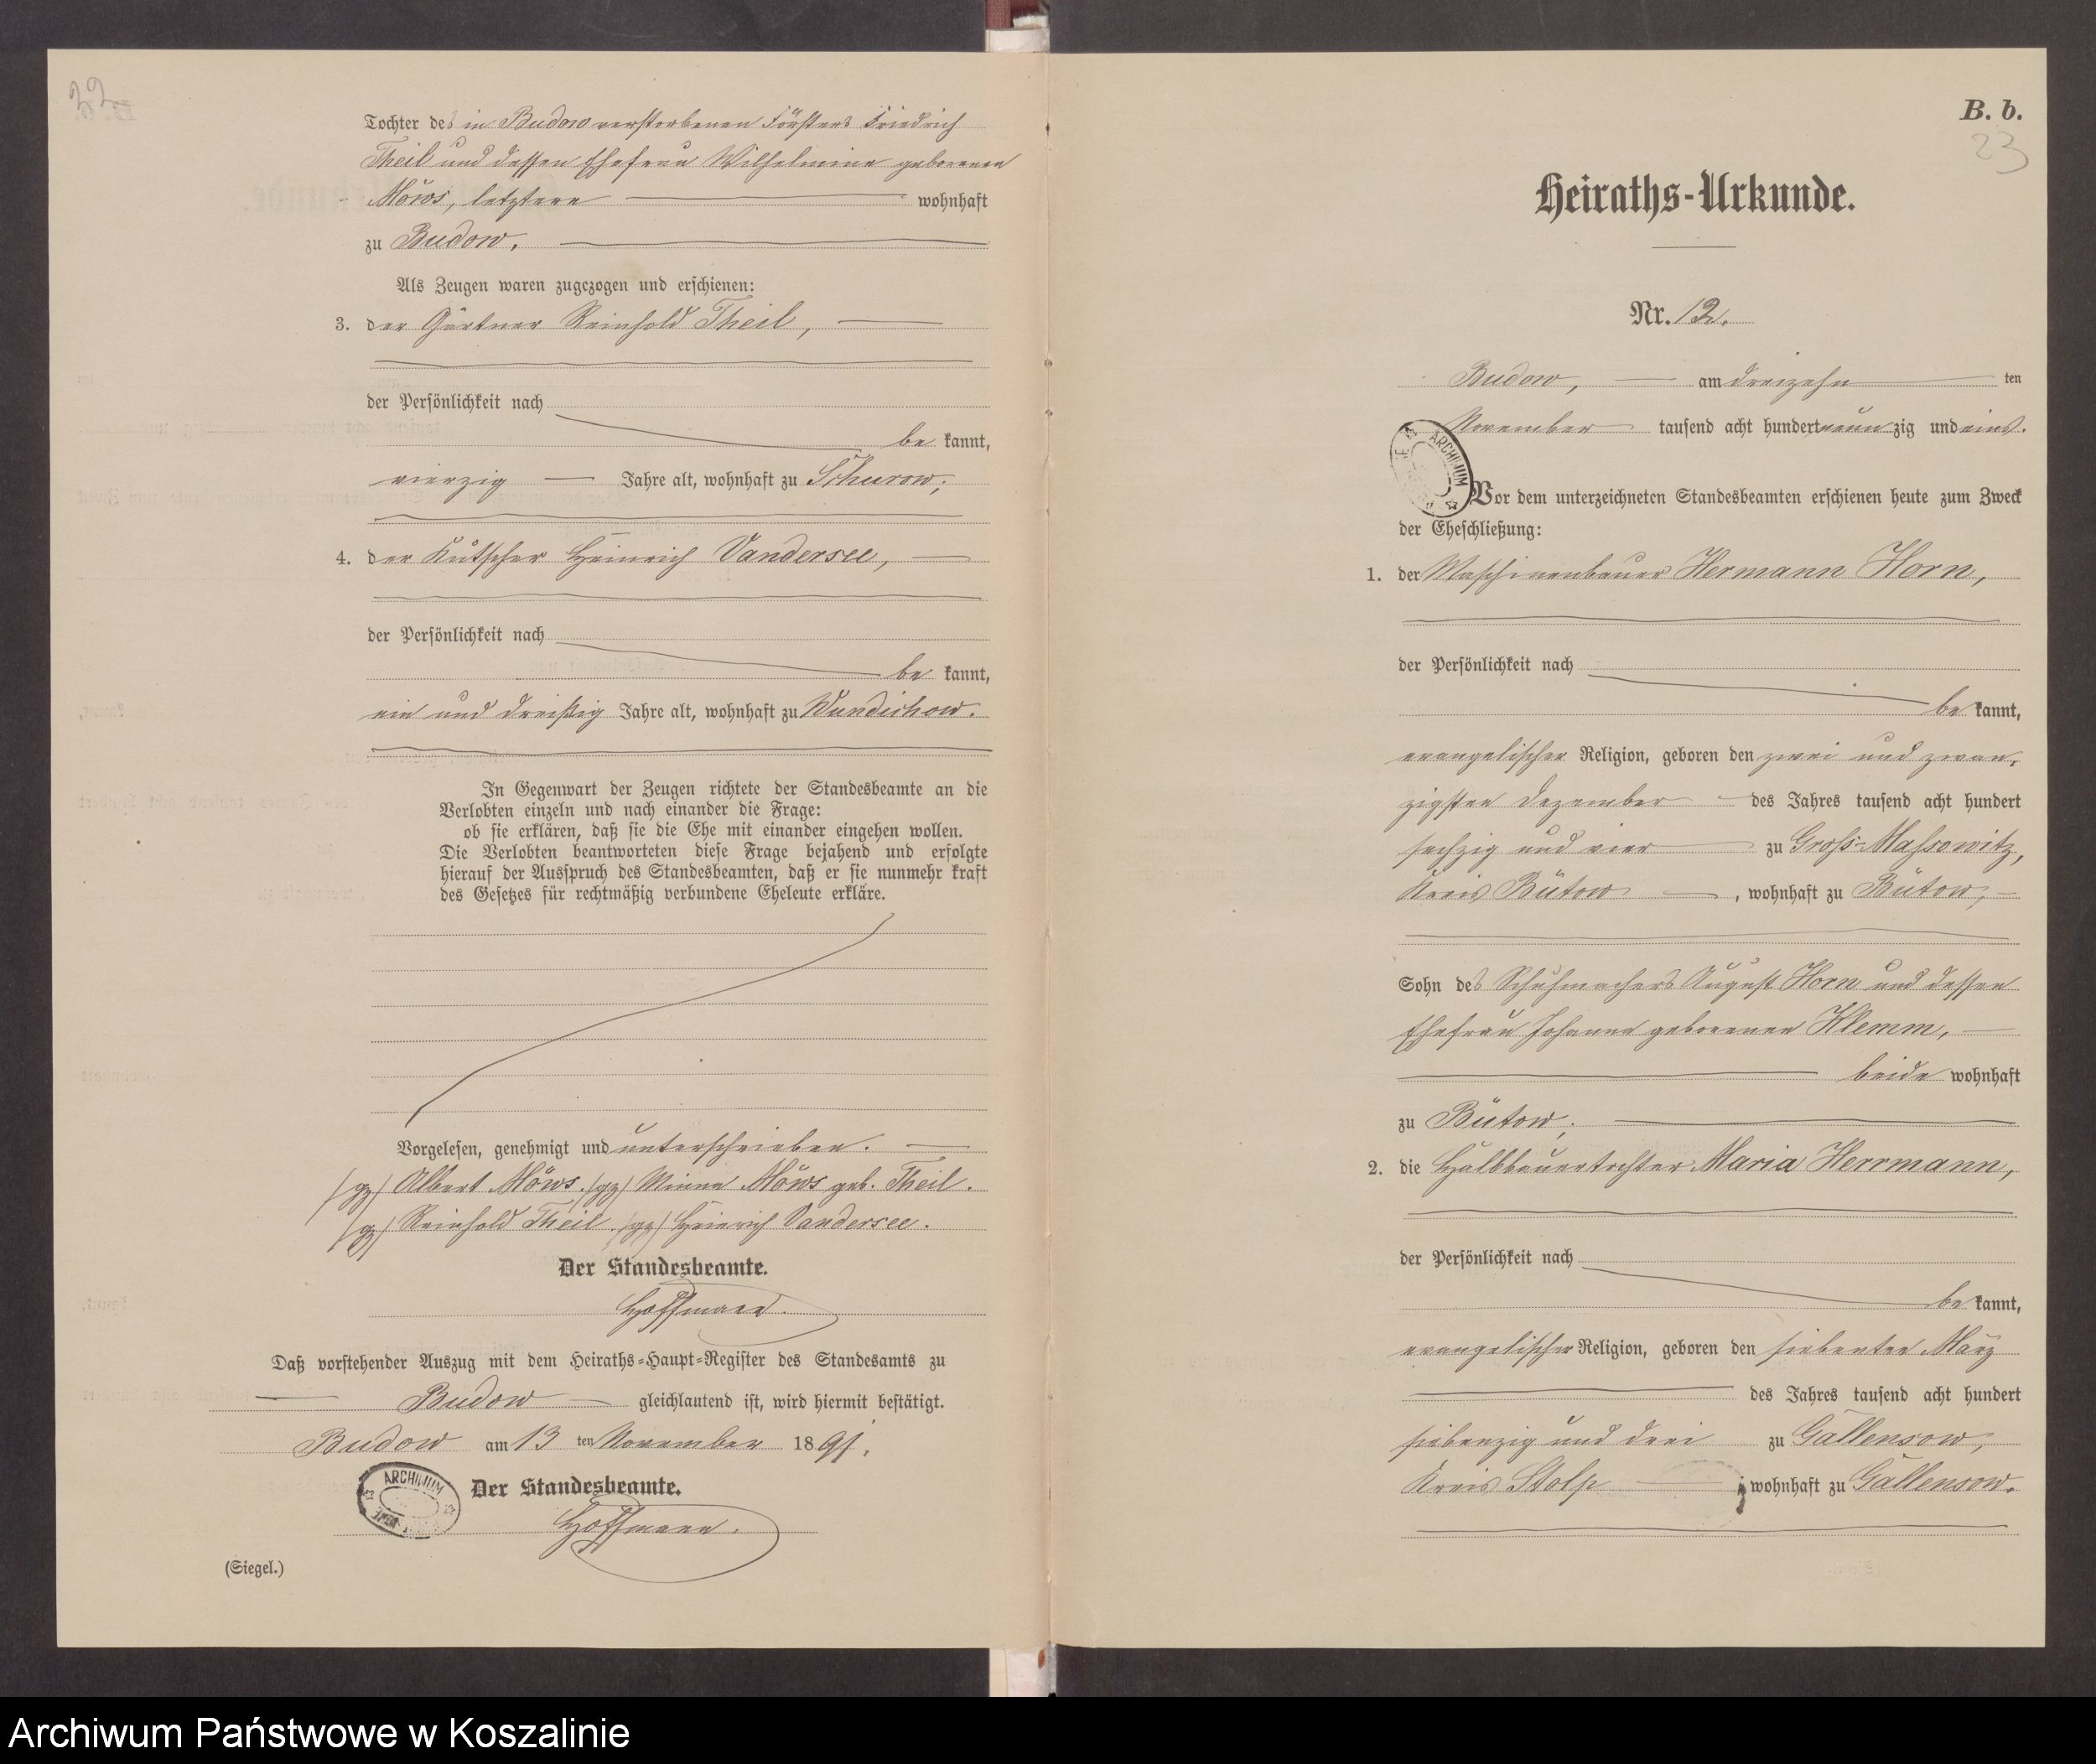 Tochter des in Budow verstorbenen Försters Friedrich
Theil und dessen Ehefrau Wilhelmine geborenen
Möws, letztere wohnhaft
zu Budow.
Als Zeugen waren zugezogen und erschienen:
3. der Gärtner Reinhold Theil,
der Persönlichkeit nach
be kannt,
vierzig Jahre alt, wohnhaft zu Schurow;
4. der Kutscher Heinrich Vandersee,
der Persönlichkeit nach
be kannt,
ein und dreißig Jahre alt, wohnhaft zu Wundichow.
In Gegenwart der Zeugen richtete der Standesbeamte an die
Verlobten einzeln und nach einander die Frage:
ob sie erklären, daß sie die Ehe mit einander eingehen wollen.
Die Verlobten beantworteten diese Frage bejahend und erfolgte
hierauf der Ausspruch des Standesbeamten, daß er sie nunmehr kraft
des Gesetzes für rechtmäßig verbundene Eheleute erkläre.
Vorgelesen, genehmigt und unterschrieben.
/gz/ Albert Möws. /gz/ Minna Möws geb. Theil.
/gz/ Reinhold Theil. /gz/ Heinrich Vandersee.
Der Standesbeamte.
Hoffmann.
Daß vorstehender Auszug mit dem Heiraths-Haupt-Register des Standesamts zu
Budow gleichlautend ist, wird hiermit bestätigt.
Budow am 13 ten November 1891.
ARCHIWUM
Der Standesbeamte.
Hoffmann.
(Siegel.)
B. b.
23
Heiraths-Urkunde.
Nr. 12.
Budow, am dreizehn ten
November tausend acht hundert neun zig und eins.
ARCHIWUM
Vor dem unterzeichneten Standesbeamten erschienen heute zum Zweck
der Eheschließung:
1. der Maschinenbauer Hermann Horn,
der Persönlichkeit nach
be kannt,
evangelischer Religion, geboren den zwei und zwan-
zigsten Dezember des Jahres tausend acht hundert
sechzig und vier zu Gross-Massowitz,
Kreis Bütow, wohnhaft zu Bütow,
Sohn des Schuhmachers August Horn und dessen
Ehefrau Johanna geborenen Klemm,
beide wohnhaft
zu Bütow;
2. die Halbbauertochter Maria Herrmann,
der Persönlichkeit nach
be kannt,
evangelischer Religion, geboren den siebenten März
des Jahres tausend acht hundert
siebenzig und drei zu Gallensow,
Kreis Stolp, wohnhaft zu Gallensow.
Archiwum Państwowe w Koszalinie